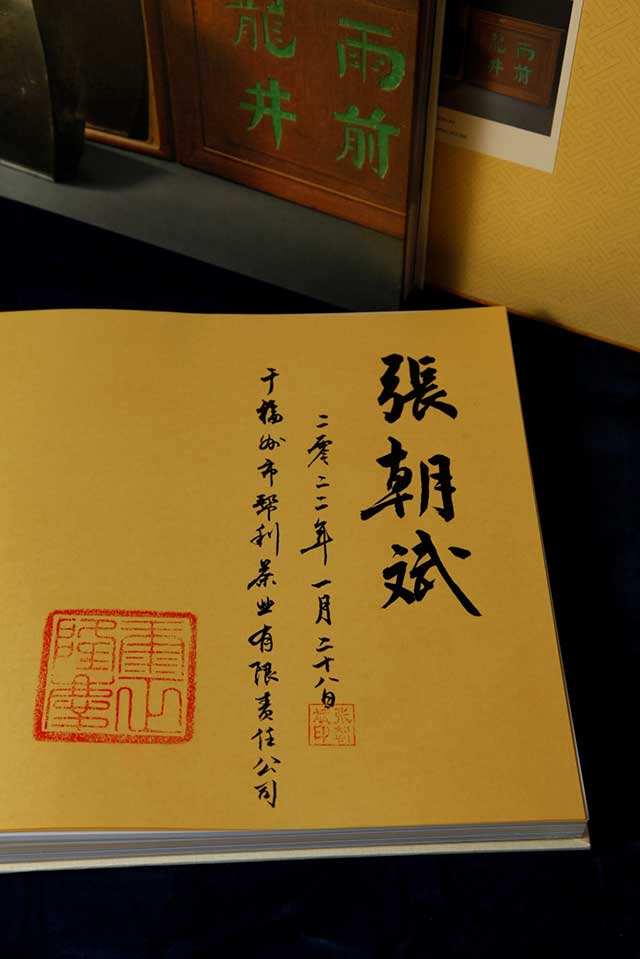 雨前
龍井
雨前
龍井
張朝斌
二零二二年一月二十八日
张朝斌印
于福州市帮利茶业有限责任公司